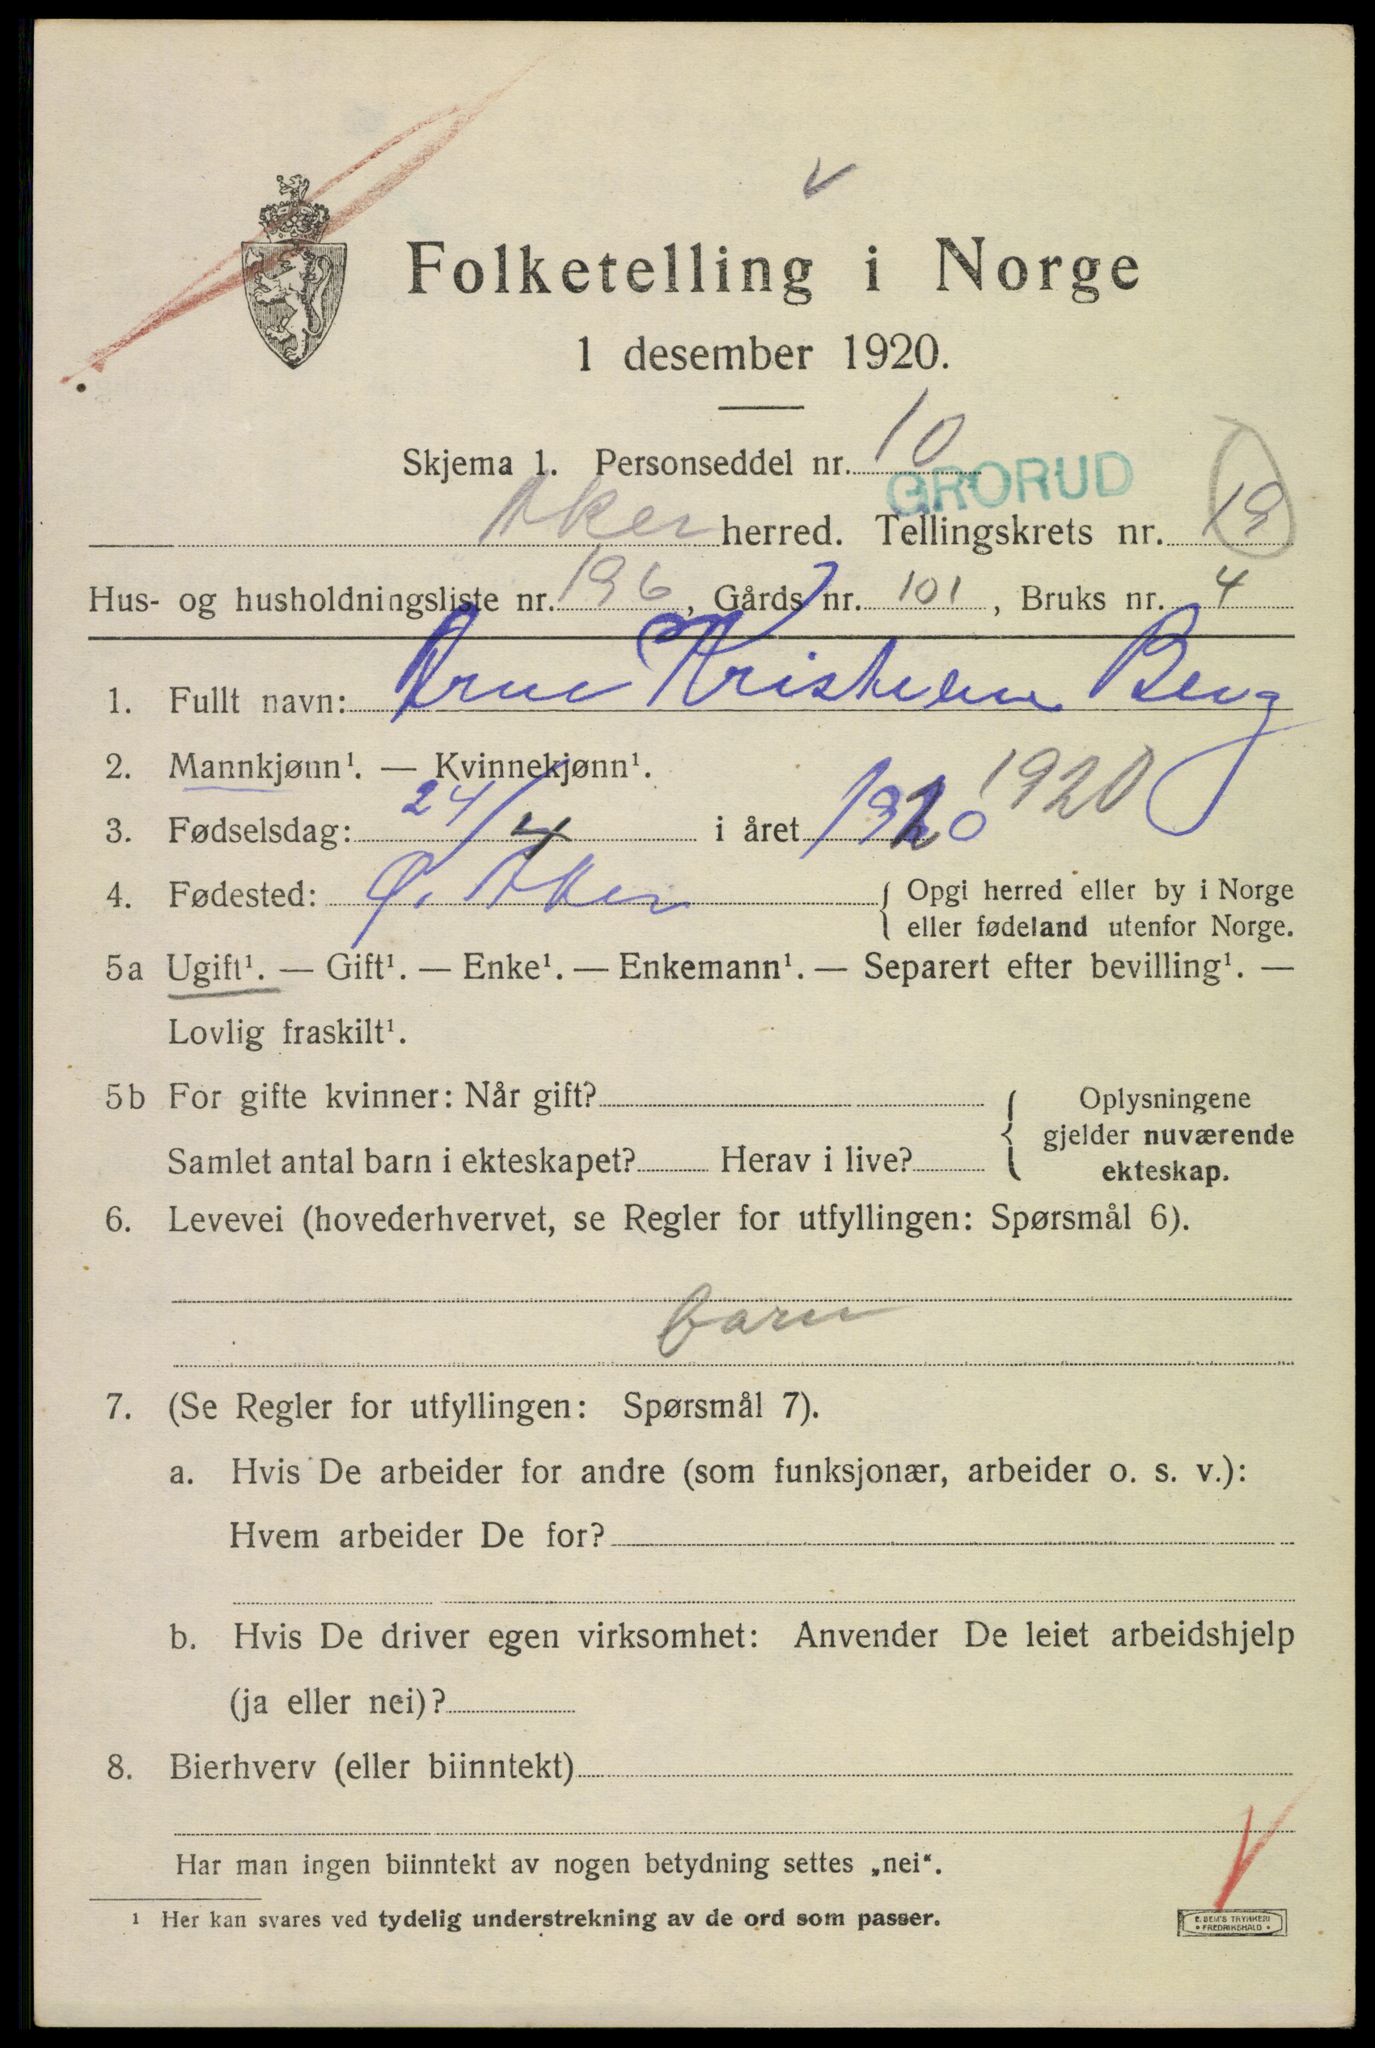 Folketelling i Norge
1 desember 1920.
Skjema 1. Personseddel nr. 10
GRORUD
Aker herred. Tellingskrets nr. 19
Hus- og husholdningsliste nr. 196, Gårds nr. 101, Bruks nr. 4
1. Fullt navn: Arne Kristian Berg
2. Mannkjønn¹. — Kvinnekjønn¹.
3. Fødselsdag: 24/4 i året 1920 1920
4. Fødested: Ø. Aker { Opgi herred eller by i Norge
eller fødeland utenfor Norge.
5a Ugift¹. — Gift¹. — Enke¹. — Enkemann¹. — Separert efter bevilling¹. —
Lovlig fraskilt¹.
5b For gifte kvinner: Når gift?
Samlet antal barn i ekteskapet? Herav i live?
{ Oplysningene
gjelder nuværende
ekteskap.
6. Levevei (hovederhvervet, se Regler for utfyllingen: Spørsmål 6).
barn
7. (Se Regler for utfyllingen: Spørsmål 7).
a. Hvis De arbeider for andre (som funksjonær, arbeider o. s. v.):
Hvem arbeider De for?
b. Hvis De driver egen virksomhet: Anvender De leiet arbeidshjelp
(ja eller nei)?
8. Bierhverv (eller biinntekt)
Har man ingen biinntekt av nogen betydning settes „nei“.
¹ Her kan svares ved tydelig understrekning av de ord som passer.
E. SEM'S TRYKKERI
• FREDRIKSHALD •